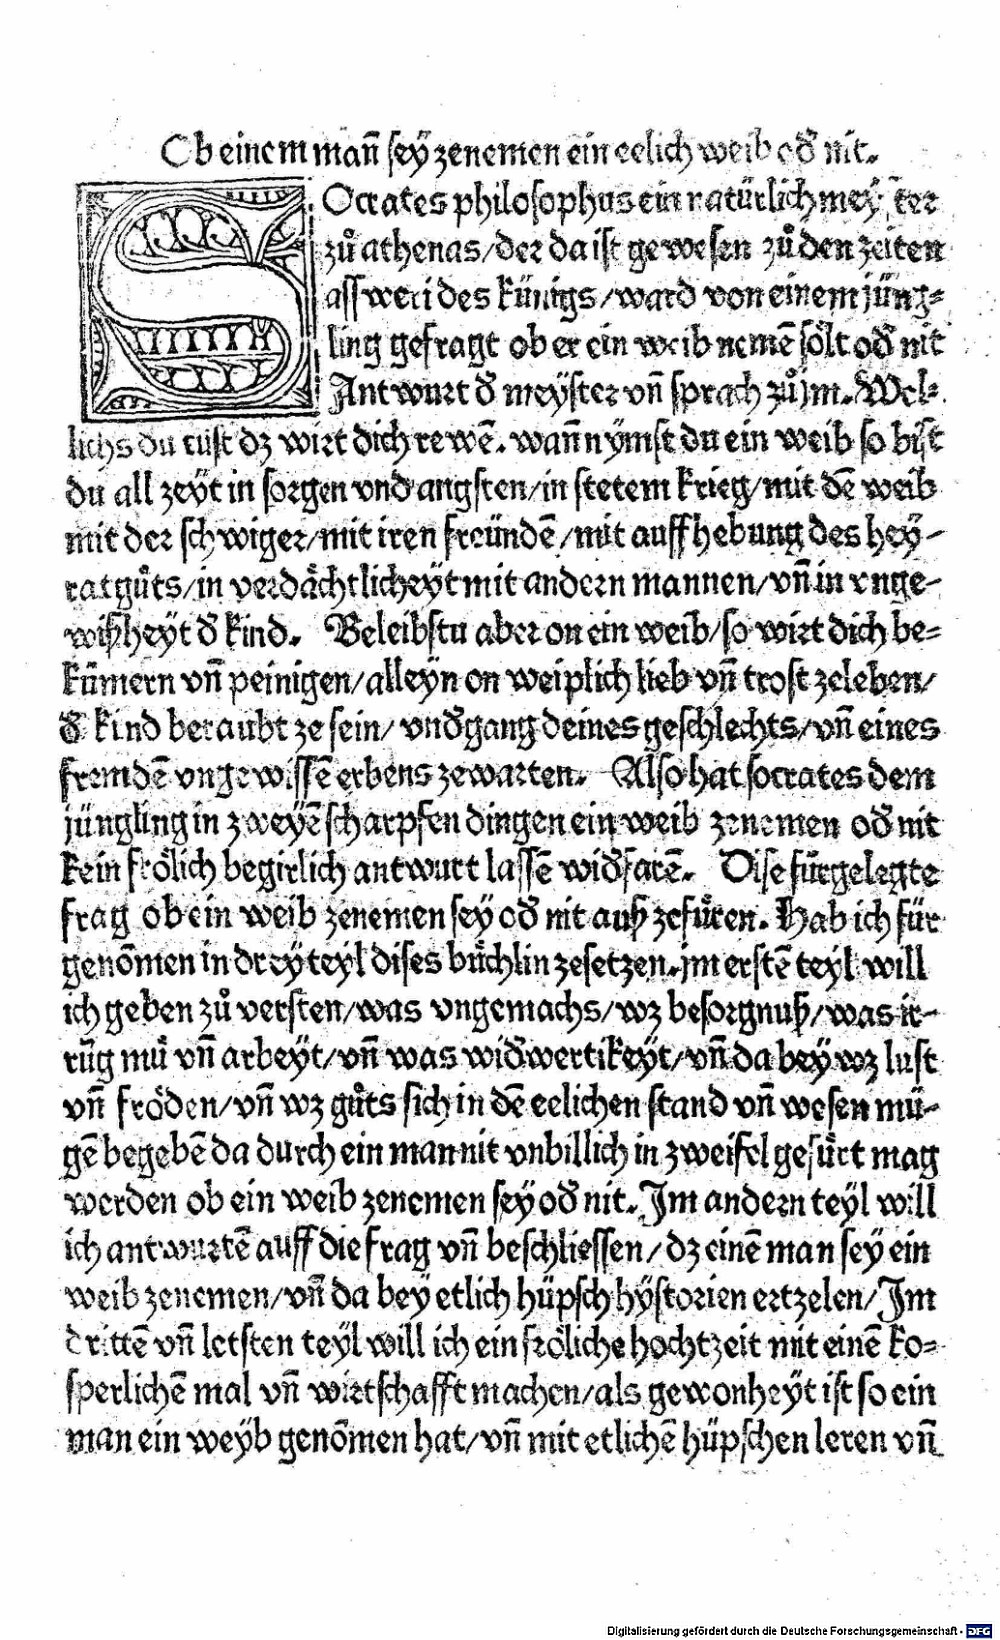 Ob einem mañ sey zenemen ein eelich weib od̾ nit.
SOcrates philosophus ein natürlich meyster
zů athenas/der da ist gewesen zů den zeiten
assweri des künigs/ward von einem jüng⸗
ling gefragt ob er ein weib nemē sölt od̾ nit
Antwurt d̾ meyster vñ sprach zů jm. Wel⸗
lichs du tust dz wirt dich rewē. wann nymst du ein weib so bist
du all zeyt in sorgen vnd angsten/in stetem krieg/mit dē weib
mit der schwiger/mit iren freündē/mit auffhebung des hey⸗
ratgůts/in verdåchtlicheyt mit andern mannen/vñ in vnge⸗
wißheyt d̾ kind. Beleibstu aber on ein weib/so wirt dich be⸗
kümern vñ peinigen/alleyn on weiplich lieb vñ trost zeleben/
d̾ kind beraubt ze sein/vnd̾gang deines geschlechts/vñ eines
fremdē vngewissē erbens zewarten. Also hat socrates dem
jüngling in zweyē scharpfen dingen ein weib zenemen od̾ nit
kein frölich begirlich antwurt lassē wid̾farē. Dise fürgelegte
frag ob ein weib zenemen sey od̾ nit auß zefüren. Hab ich für
genōmen in drey teyl dises büchlin zesetzen. jm erstē teyl will
ich geben zů versten/was vngemachs/wz besorgnuß/was ir⸗
rūg mü vñ arbeyt/vñ was wid̾wertikeyt/vñ da bey wz lust
vñ fröden/vñ wz gůts sich in dē eelichen stand vñ wesen mü⸗
gē begebē da durch ein man nit vnbillich in zweifel gefürt mag
werden ob ein weib zenemen sey od̾ nit. Jm andern teyl will
ich antwurtē auff die frag vñ beschliessen/dz einē man sey ein
weib zenemen/vñ da bey etlich hüpsch hystorien ertzelen/Jm
drittē vñ letsten teyl will ich ein fröliche hochtzeit mit einē ko⸗
sperlichē mal vñ wirtschafft machen/als gewonheyt ist so ein
man ein weyb genōmen hat/vñ mit etlichē hüpschen leren vñ
Digitalisierung gefördert durch die Deutsche Forschungsgemeinschaft - DFG